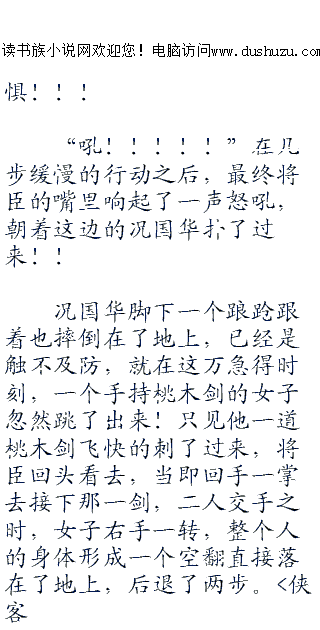 读书族小说网欢迎您！电脑访问www.dushuzu.com
惧！！！
“吼！！！！！”在几
步缓慢的行动之后，最终将
臣的嘴里响起了一声怒吼，
朝着这边的况国华扑了过
来！！
况国华脚下一个踉跄跟
着也摔倒在了地上，已经是
触不及防，就在这万急得时
刻，一个手持桃木剑的女子
忽然跳了出来！只见他一道
桃木剑飞快的刺了过来，将
臣回头看去，当即回手一掌
去接下那一剑，二人交手之
时，女子右手一转，整个人
的身体形成一个空翻直接落
在了地上，后退了两步。<侠
客